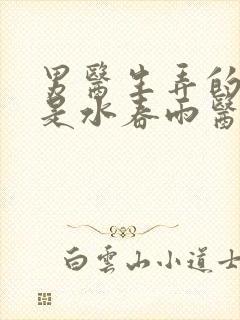 男醫生弄的
是水春雨醫
白雲山小道士